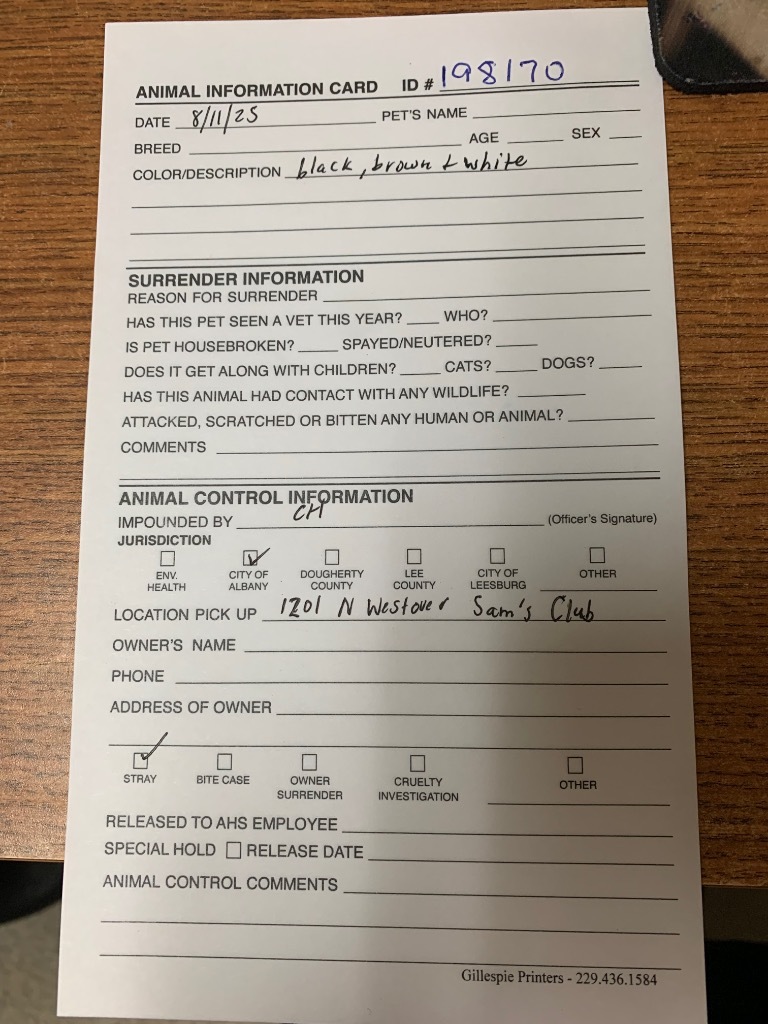 ANIMAL INFORMATION CARD ID # 198170
DATE 8/11/25 PET'S NAME
BREED AGE SEX
COLOR/DESCRIPTION black, brown + white
SURRENDER INFORMATION
REASON FOR SURRENDER
HAS THIS PET SEEN A VET THIS YEAR? WHO?
IS PET HOUSEBROKEN? SPAYED/NEUTERED?
DOES IT GET ALONG WITH CHILDREN? CATS? DOGS?
HAS THIS ANIMAL HAD CONTACT WITH ANY WILDLIFE?
ATTACKED, SCRATCHED OR BITTEN ANY HUMAN OR ANIMAL?
COMMENTS
ANIMAL CONTROL INFORMATION
IMPOUNDED BY CH (Officer's Signature)
JURISDICTION
ENV. HEALTH CITY OF ALBANY DOUGHERTY COUNTY LEE COUNTY CITY OF LEESBURG OTHER
LOCATION PICK UP 1201 N Westover Sam's Club
OWNER'S NAME
PHONE
ADDRESS OF OWNER
STRAY BITE CASE OWNER SURRENDER CRUELTY INVESTIGATION OTHER
RELEASED TO AHS EMPLOYEE
SPECIAL HOLD RELEASE DATE
ANIMAL CONTROL COMMENTS
Gillespie Printers - 229.436.1584